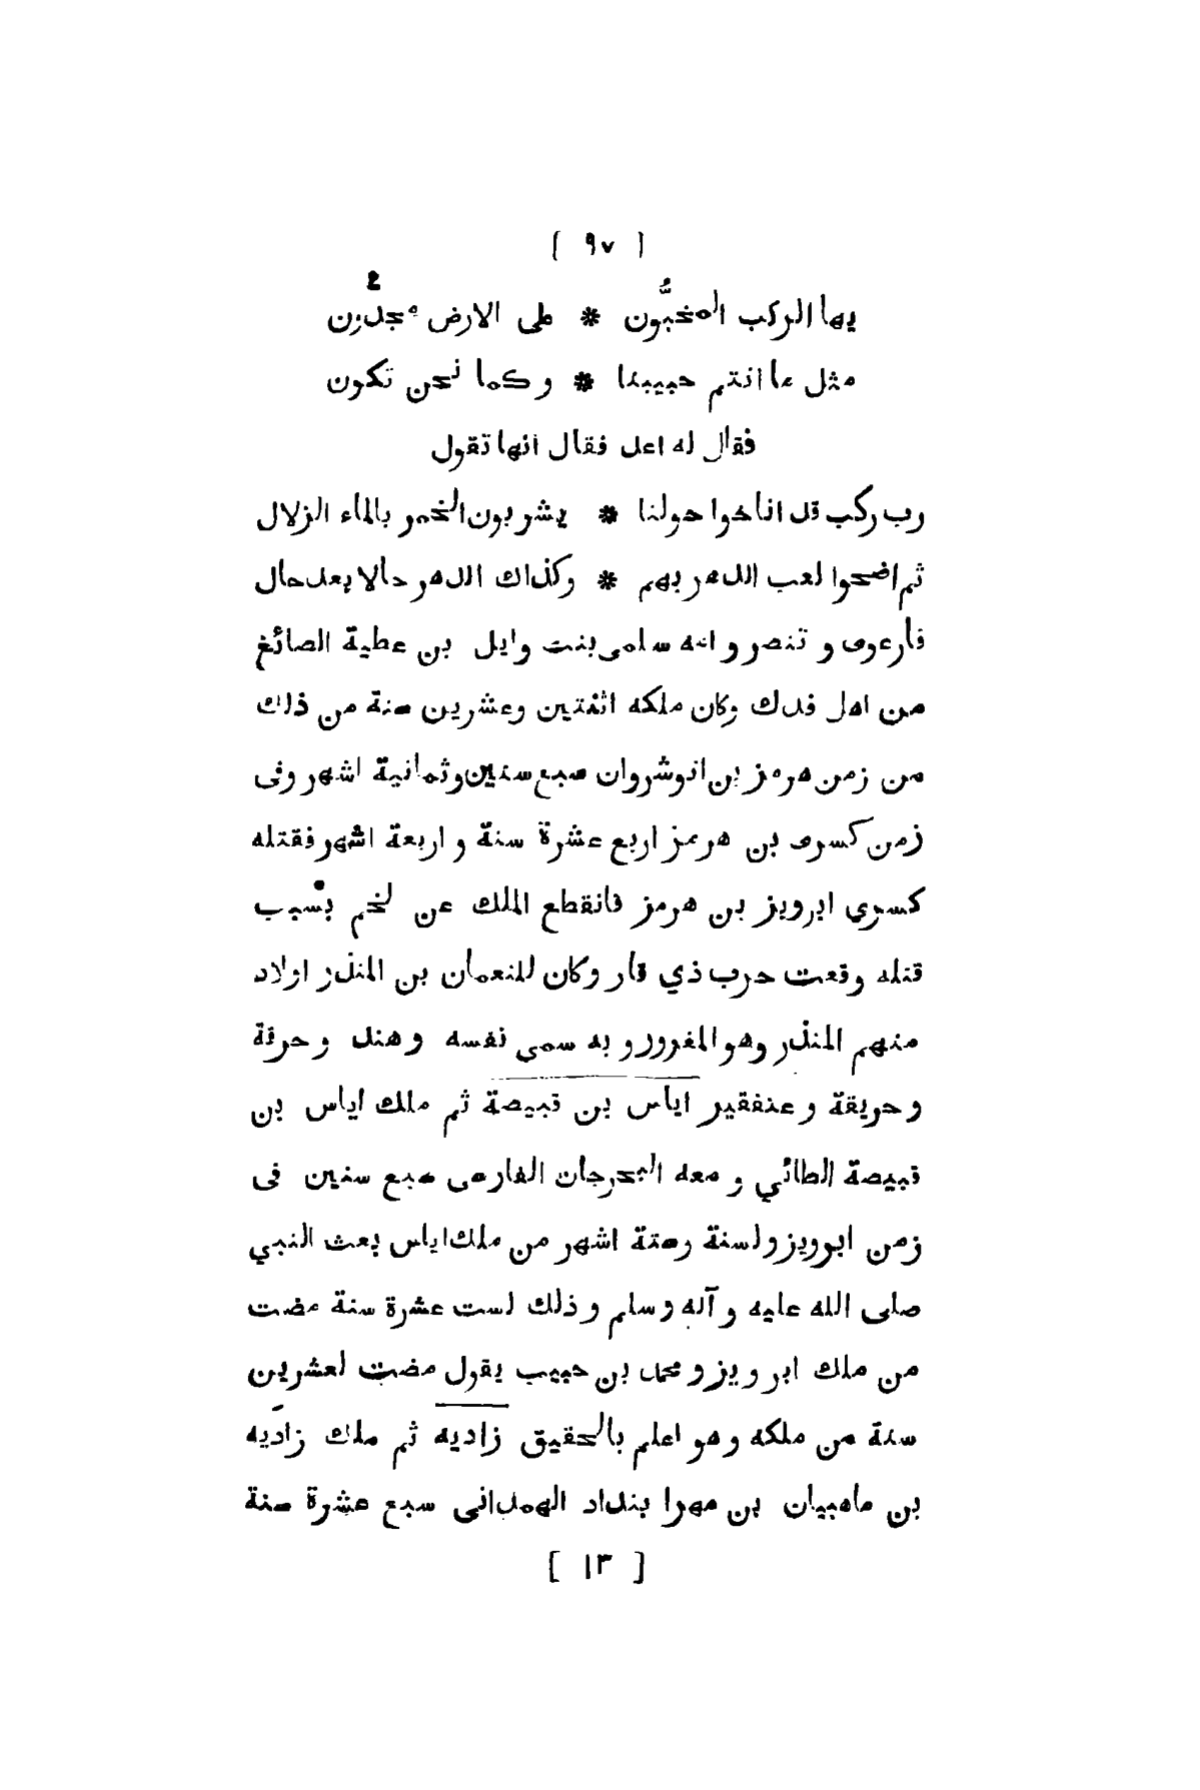 [ ٩٧ ]
يها الركب المخبّون * على الارض مجدّون
مثل ما انتم حبيبنا * و كما نحن تكون
فقال له اعد فقال انها تقول
رب ركب قد اناخوا حولنا * يشربون الخمر بالماء الزلال
ثم اضحوا لعب الدهر بهم * وكذاك الدهر حالا بعد حال
فارعوى و تنصر و امه سلمى بنت وايل بن عطية الصائغ
من اهل فدك وكان ملكه اثنتين وعشرين سنة من ذلك
من زمن هرمز بن انوشروان سبع سنين وثمانية اشهر وفى
زمن كسرى بن هرمز اربع عشرة سنة و اربعة اشهر فقتله
كسرى ابرويز بن هرمز فانقطع الملك عن لخم بسبب
قتله وقعت حرب ذي قار وكان للنعمان بن المنذر اولاد
منهم المنذر وهو المغرور و به سمى نفسه وهند وحرقة
وحريقة وعنفقير اياس بن قبيصة ثم ملك اياس بن
قبيصة الطائي و معه النخرجان الفارسى سبع سنين فى
زمن ابرويز ولسنة وستة اشهر من ملك اياس بعث النبي
صلى الله عليه وآله وسلم وذلك لست عشرة سنة مضت
من ملك ابرويز و محمد بن حبيب يقول مضت لعشرين
سنة من ملكه وهو اعلم بالحقيق زاديه ثم ملك زاديه
بن ماهبيان بن مهرا بنداد الهمدانى سبع عشرة سنة
[ ١٣ ]